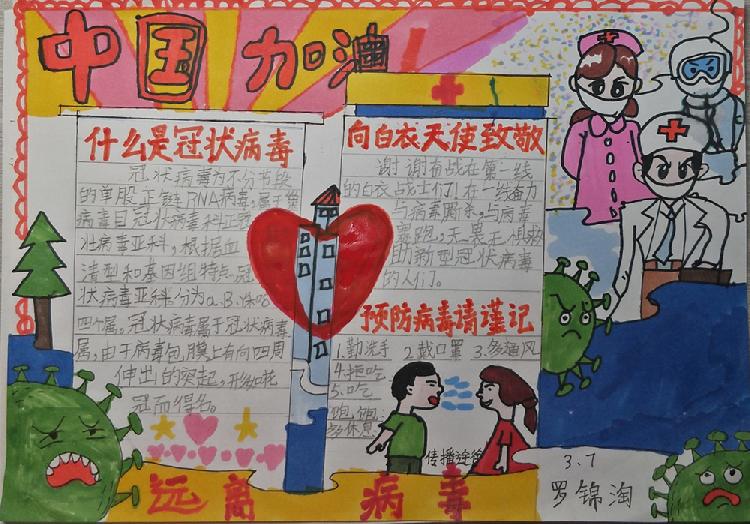 中国加油
什么是冠状病毒
冠状病毒为不分节段
的单股正链RNA病毒,属于巢
病毒目冠状病毒科正冠
状病毒亚科,根据血
清型和基因组特点冠
状病毒亚科分为a.B.
四个属。冠状病毒属于冠状病毒
属,由于病毒包膜上有向四周
伸出的突起,形如花
冠而得名。
向白衣天使致敬
谢谢奋战在第一线
的白衣战士们!在一线奋力
与病素斯杀,与病毒
赛跑,无畏无惧救
助新型冠状病毒
的人们。
预防病毒请谨记
1.勤洗手 2.戴口罩 3.多通风
4.拒吃
5.吃
饱,
多休息
传播途径
远离病毒
3.7
罗锦淘